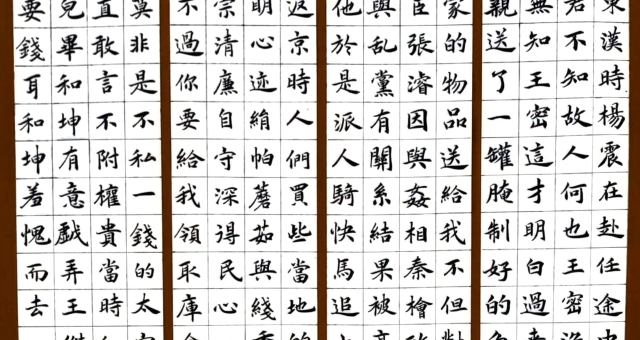 東漢時楊震在赴任途中
君不知故人何也王密
無知王密這才明白過來
親送了一罐腌制好的魚
家的物品送給我不但對
臣張濬因與姦相秦檜政
與亂黨有關系結果被高
他於是派人騎快馬追上
返京時人們買些當地的
明心迹絹帕蘑茹與綫香
宗清廉自守深得民心
不過你要給我領取庫
莫非是不私一錢的太守
直敢言不附權貴當時
兒畢和坤有意戲弄王傑
要錢耳和坤羞愧而去